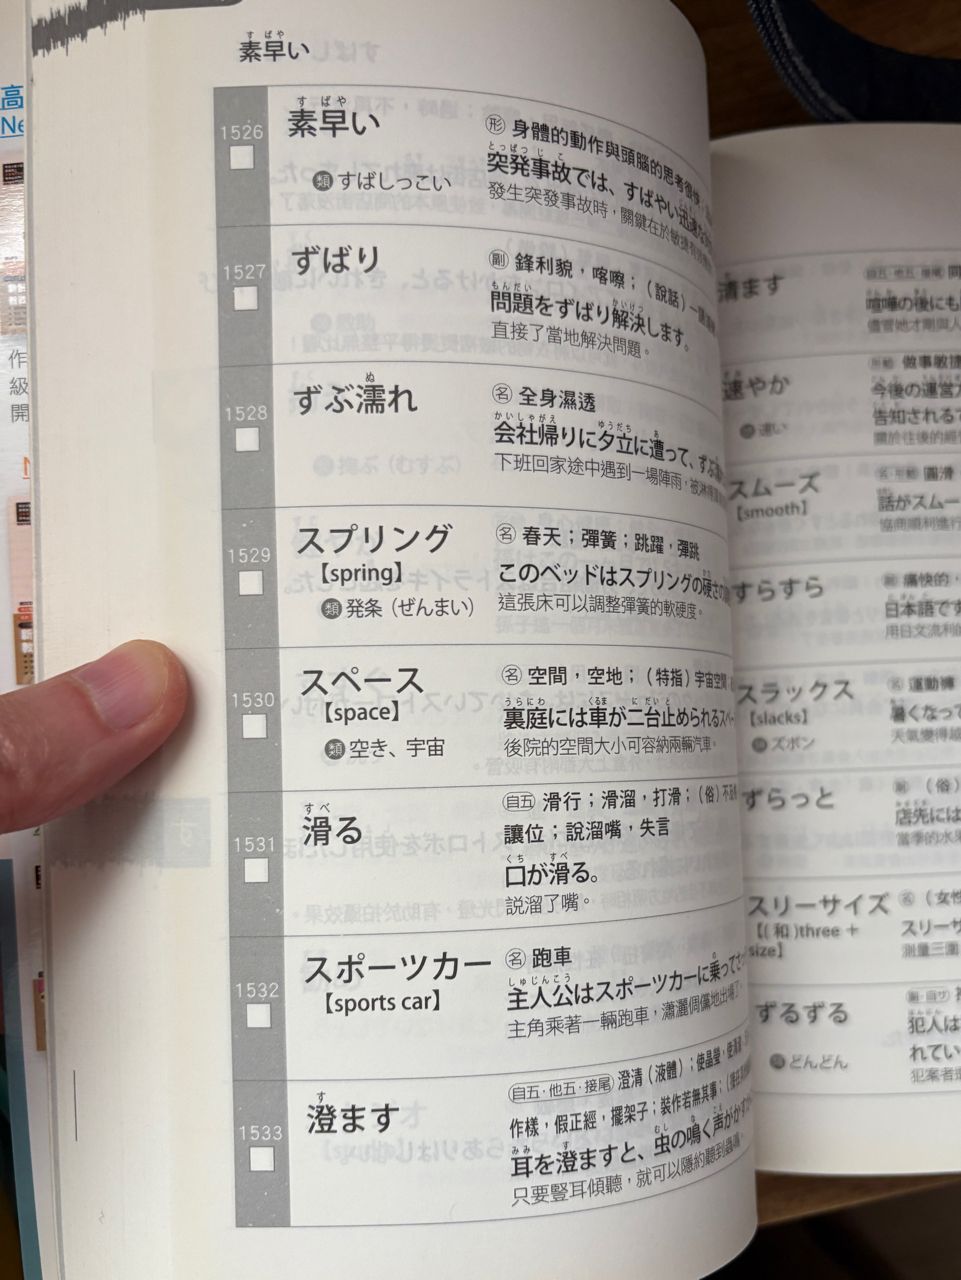 素早い
すばや
1526
素早い
すばや
類 すばしっこい
形 身體的動作與頭腦的思考很快
とっぱつ じこ
突発事故では、すばやい迅速な
發生突發事故時，關鍵在於敏捷有
1527
ずばり
副 鋒利貌，喀嚓；（說話）一
もんだい かいけつ
問題をずばり解決します。
直接了當地解決問題。
1528
ずぶ濡れ
ぬ
名 全身濕透
かいしゃがえ ゆうだち あ
会社帰りに夕立に遭って、ずぶ
下班回家途中遇到一場陣雨，被淋
1529
スプリング
【spring】
類 発条（ぜんまい）
名 春天；彈簧；跳躍，彈跳
このベッドはスプリングの硬さの
這張床可以調整彈簧的軟硬度。
1530
スペース
【space】
類 空き、宇宙
名 空間，空地；（特指）宇宙空間
うらにわ くるま にだいと
裏庭には車が二台止められるスペー
後院的空間大小可容納兩輛汽車。
1531
滑る
すべ
自五 滑行；滑溜，打滑；（俗）不
讓位；說溜嘴，失言
くち すべ
口が滑る。
說溜了嘴。
1532
スポーツカー
【sports car】
名 跑車
しゅじんこう の
主人公はスポーツカーに乗ってさっ
主角乘著一輛跑車，瀟灑倜儻地出場了
1533
澄ます
す
自五・他五・接尾 澄清（液體）；使晶瑩，使清
作樣，假正經，擺架子；裝作若無其事；
みみ す むし な こえ
耳を澄ますと、虫の鳴く声がかすか
只要豎耳傾聽，就可以隱約聽到蟲鳴
す
済ます
自五・他五・接尾
喧嘩の後にも
儘管她才剛與人
速やか
類 速い
做事敏捷
今後の運営
告知される
關於往後的經
スムーズ
【smooth】
名・形動 圓滑
話がスムー
協商順利進行
すらすら
副 痛快的，
日本語で
用日文流利
スラックス
【slacks】
類 ズボン
名 運動褲
暑くなって
天氣變得越
ずらっと
副 （俗）
店先には
當季的水果
スリーサイズ
【(和)three +
size】
名 （女性
スリーサ
測量三圍
ずるずる
類 どんどん
副・自サ
犯人は
れてい
犯案者
高
Ne
作
級
開